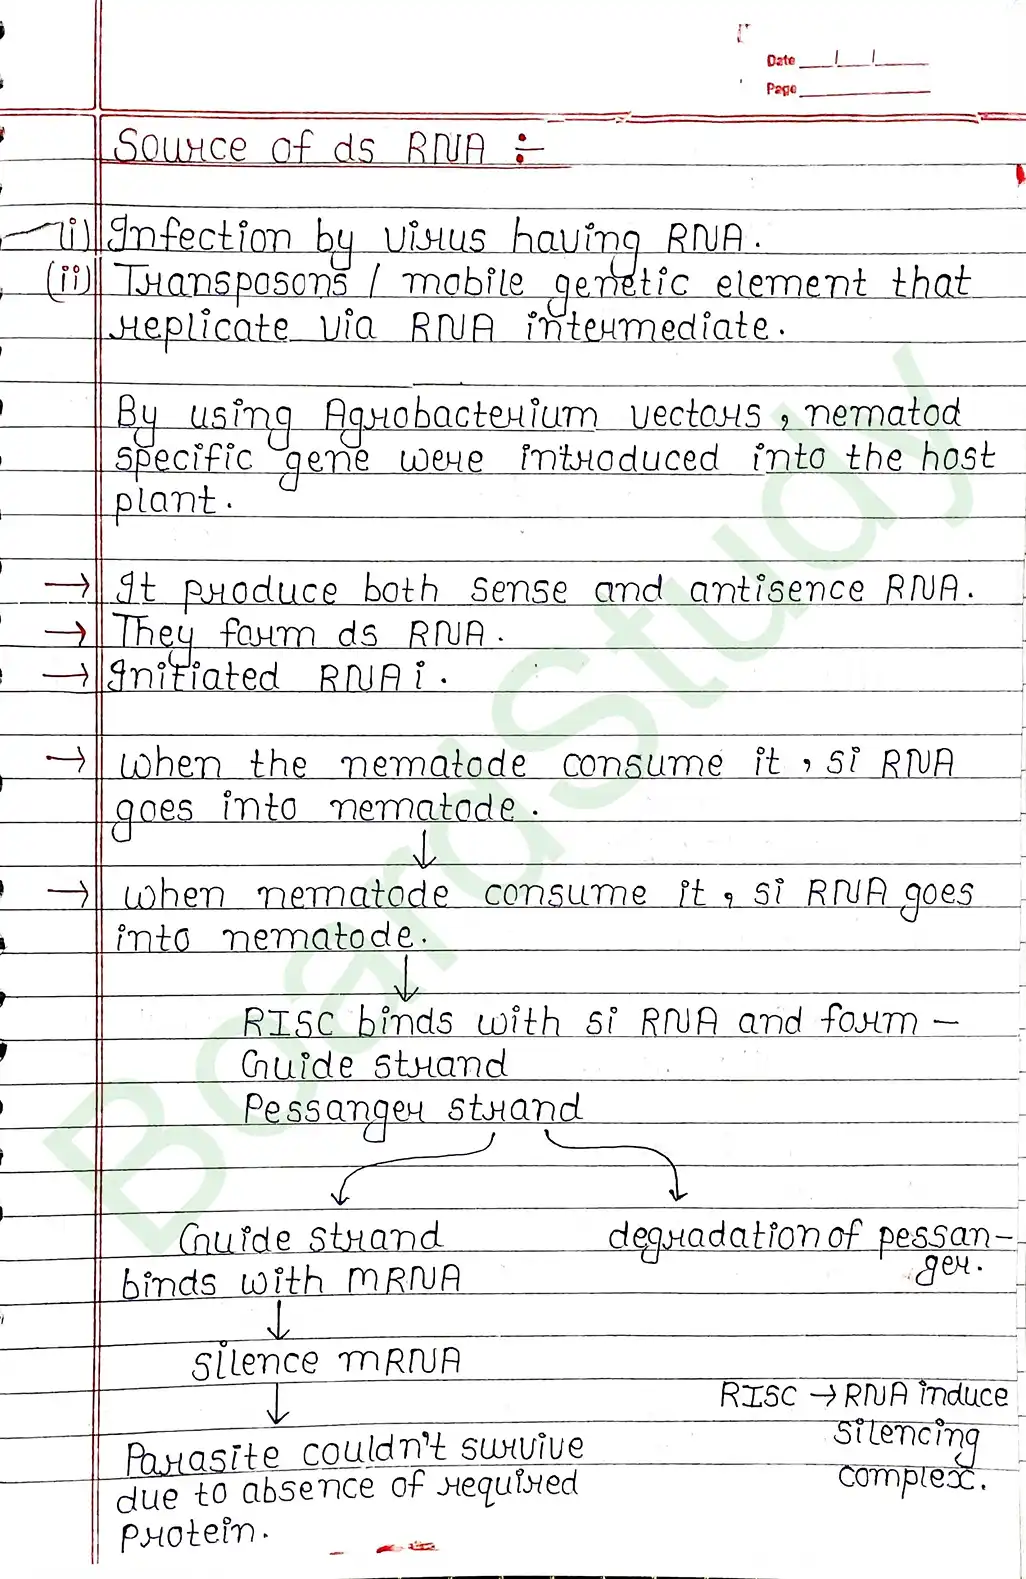 Date
Page
Source of ds RNA ÷
(i) Infection by virus having RNA.
(ii) Transposons / mobile genetic element that
replicate via RNA intermediate.
By using Agrobacterium vectors, nematod
specific gene were introduced into the host
plant.
→ It produce both sense and antisence RNA.
→ They form ds RNA.
→ Initiated RNA i.
→ when the nematode consume it, si RNA
goes into nematode.
↓
→ when nematode consume it, si RNA goes
into nematode.
↓
RISC binds with si RNA and form –
Guide strand
Pessanger strand
Guide strand
binds with mRNA
↓
silence mRNA
↓
Parasite couldn't survive
due to absence of required
Protein.
degradation of pessan-
ger.
RISC → RNA induce
silencing
complex.
BoardStudy